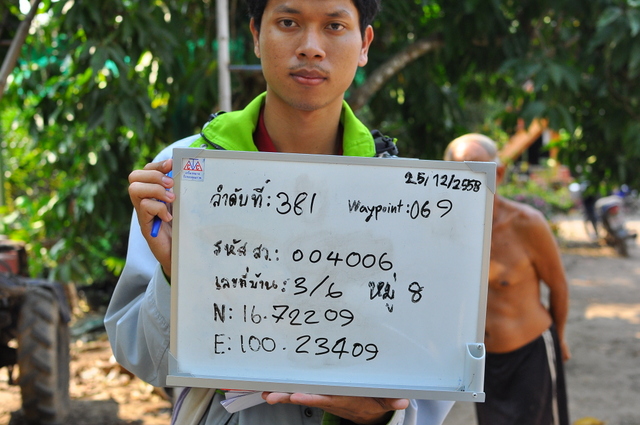 25/12/2558
ลำดับที่: 381 Waypoint: 069
รหัส สว.: 004006
เลขที่บ้าน: 3/6 หมู่ 8
N: 16.72209
E: 100.23409